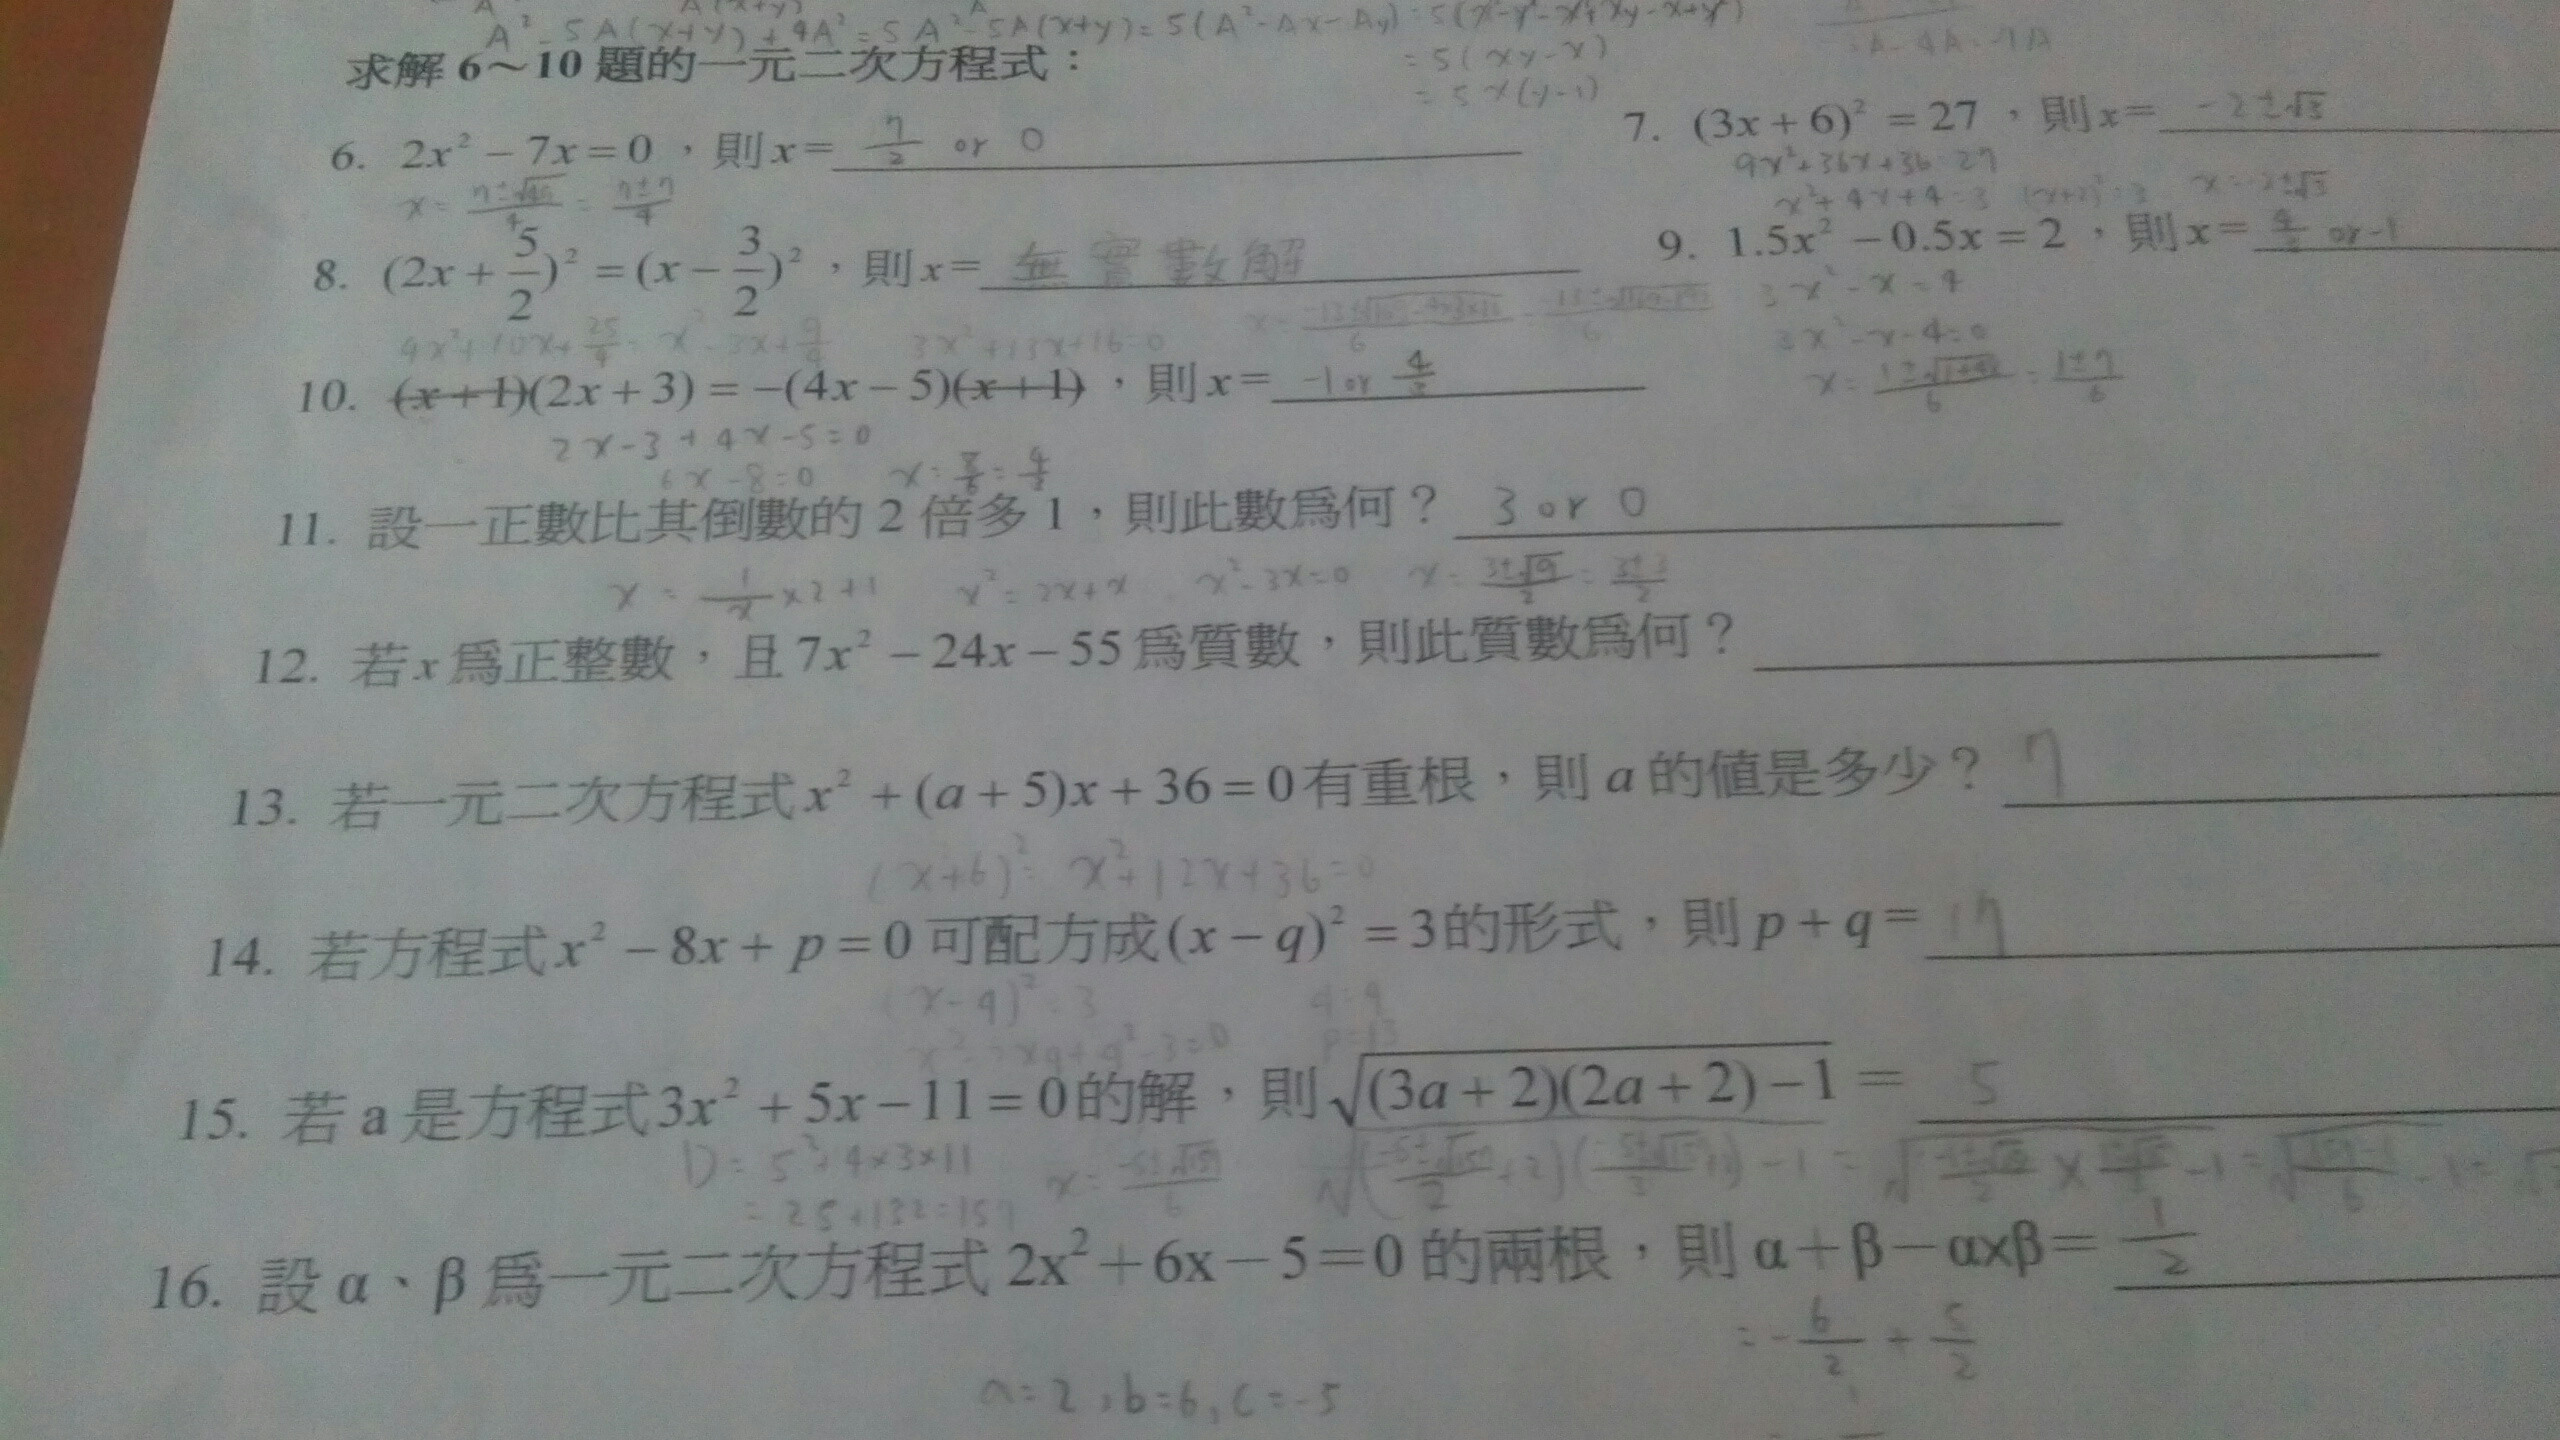 A² - 5A(x+y) + 4A² = 5A² - 5A(x+y) = 5(A² - Ax - Ay)
= 5(xy-x)
= 5x(y-1)
求解 6～10 題的一元二次方程式：
6. 2x² - 7x = 0，則 x = 7/2 or 0
7. (3x + 6)² = 27，則 x = -2±√3
9x²+36x+36=27
x²+4x+4=3 (x+2)²=3 x=-2±√3
8. (2x + 5/2)² = (x - 3/2)²，則 x = 無實數解
4x²+10x+25/4 = x²-3x+9/4 3x²+13x+16=0
9. 1.5x² - 0.5x = 2，則 x = 4/3 or -1
3x²-x=4
3x²-x-4=0
10. (x+1)(2x + 3) = -(4x - 5)(x+1)，則 x = -1 or 4/3
2x-3+4x-5=0
6x-8=0 x=8/6=4/3
11. 設一正數比其倒數的 2 倍多 1，則此數爲何？ 3 or 0
x = 1/x ×2+1 x²=2x+x x²-3x=0 x=3±√9/2=3±3/2
12. 若 x 爲正整數，且 7x² - 24x - 55 爲質數，則此質數爲何？
13. 若一元二次方程式 x² + (a + 5)x + 36 = 0 有重根，則 a 的值是多少？ 7
(x+6)² = x²+12x+36=0
14. 若方程式 x² - 8x + p = 0 可配方成 (x - q)² = 3 的形式，則 p + q = 17
(x-q)²=3
x²-2xq+q²-3=0 p=13
15. 若 a 是方程式 3x² + 5x - 11 = 0 的解，則 √(3a + 2)(2a + 2) - 1 = 5
D = 5²+4×3×11
= 25+132=157
16. 設 α、β 爲一元二次方程式 2x² + 6x - 5 = 0 的兩根，則 α + β - αxβ = 1/2
= - 6/2 + 5/2
a=2, b=6, c=-5